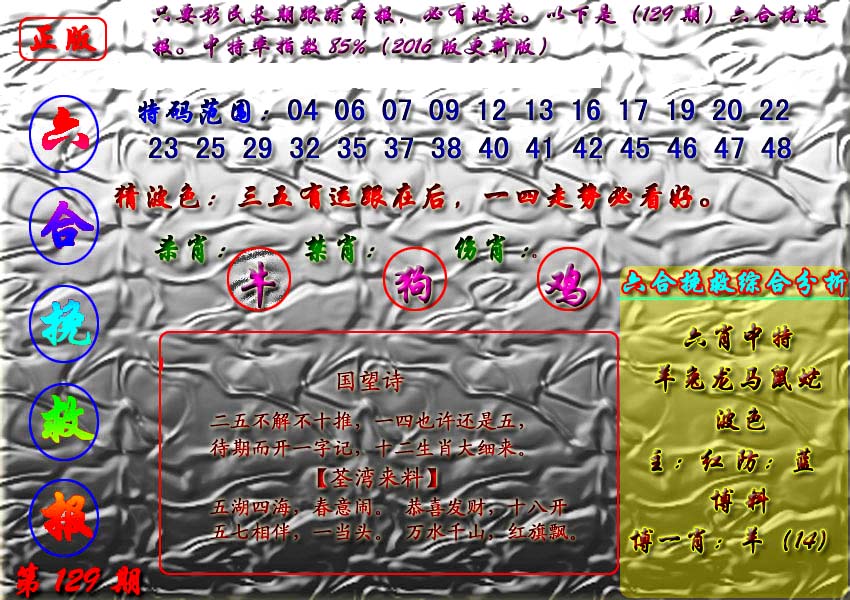 正版
只要彩民长期跟踪本报，必有收获。以下是（129期）六合挽救
报。中特率指数85%（2016版更新版）
六
合
挽
救
报
第129期
特码范围：04 06 07 09 12 13 16 17 19 20 22
23 25 29 32 35 37 38 40 41 42 45 46 47 48
猜波色：三五有运跟在后，一四走势必看好。
杀肖：牛 禁肖：狗 伤肖：。鸡
国望诗
二五不解不十推，一四也许还是五，
待期而开一字记，十二生肖大细来。
【荃湾来料】
五湖四海，春意闹。 恭喜发财，十八开
五七相伴，一当头。 万水千山，红旗飘。
六合挽救综合分析
六肖中特
羊兔龙马鼠蛇
波色
主：红防：蓝
博料
博一肖：羊（14）